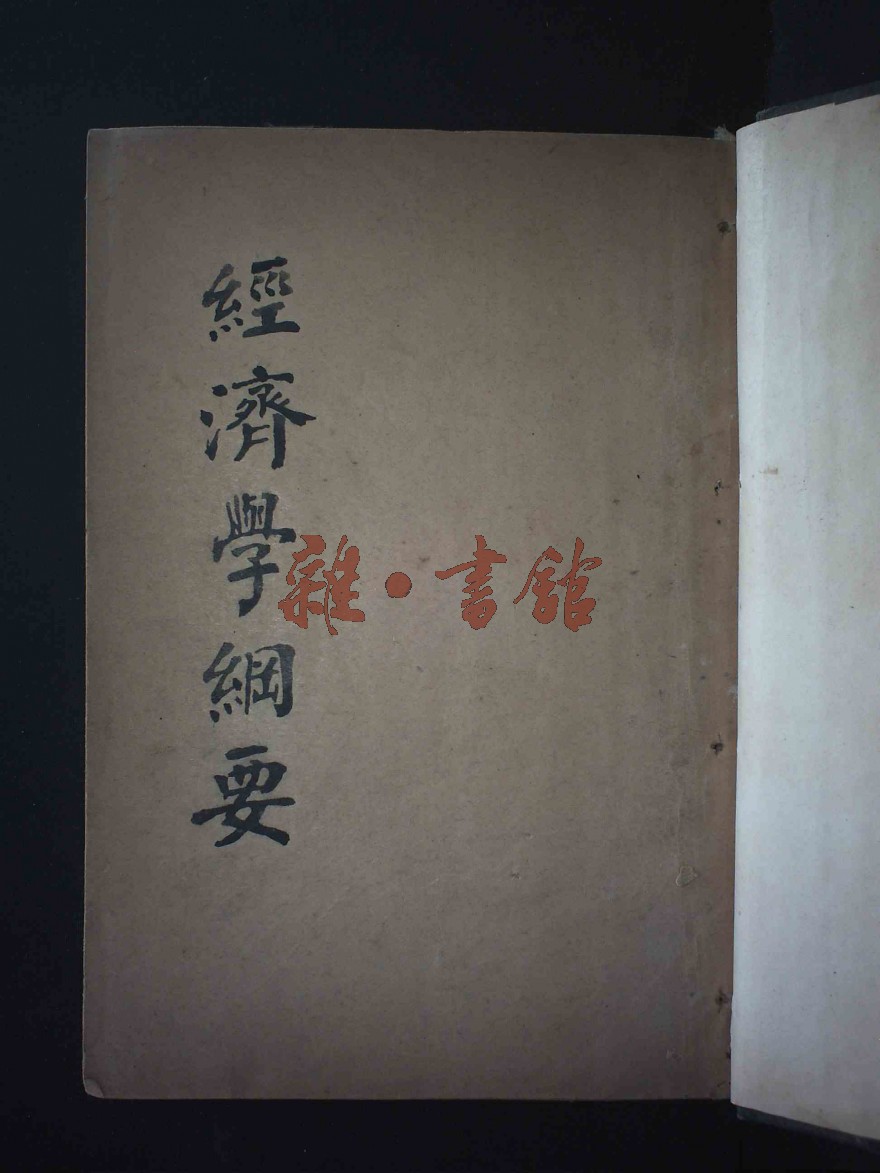 經濟學綱要
雜·書館